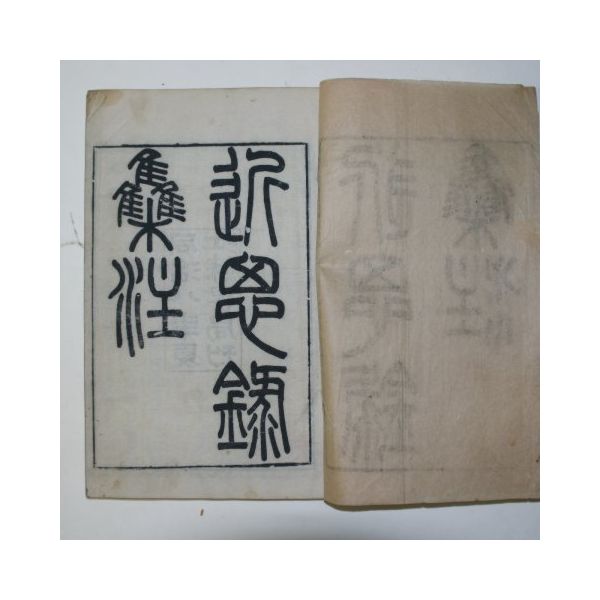 近思録
集注